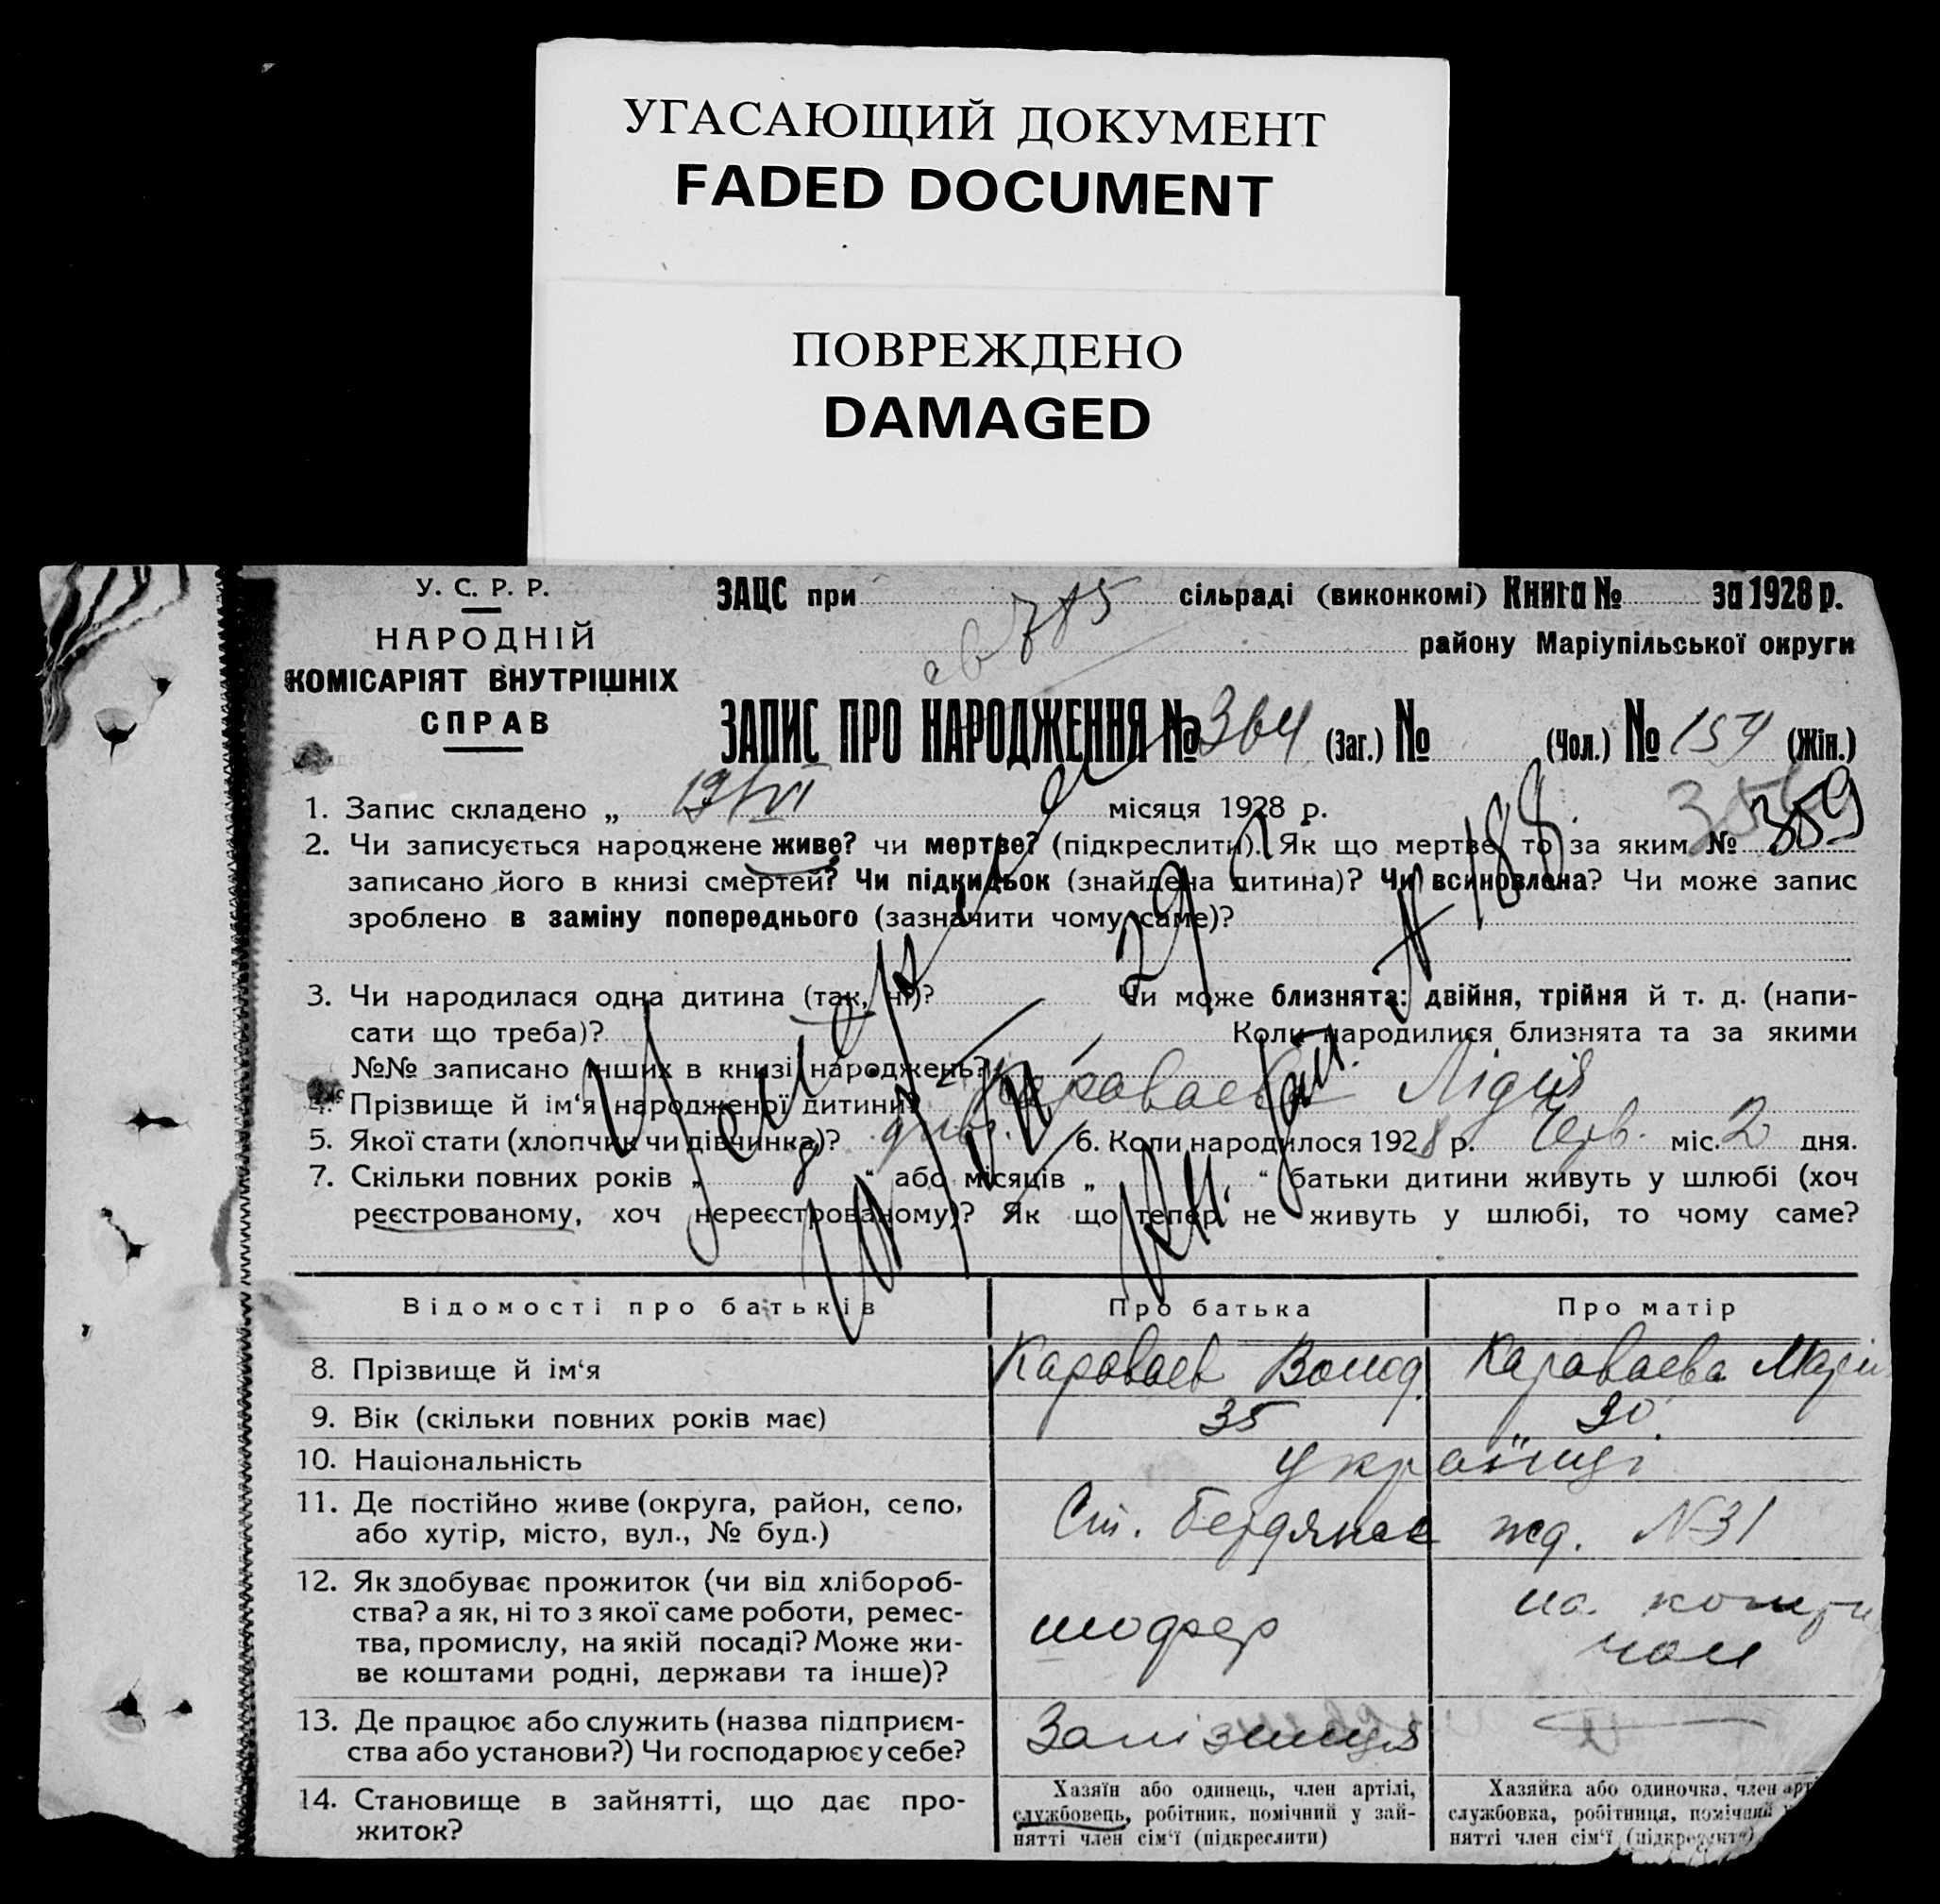 УГАСАЮЩИЙ ДОКУМЕНТ
FADED DOCUMENT
ПОВРЕЖДЕНО
DAMAGED
У. С. Р. Р.
НАРОДНІЙ
КОМІСАРІЯТ ВНУТРІШНІХ
СПРАВ
ЗАЦС при сільраді (виконкомі) Книга № за 1928 р.
785
району Маріупільської округи
ЗАПИС ПРО НАРОДЖЕННЯ № 364 (Заг.) № (Чол.) № 159 (Жін.)
1. Запис складено „ 19/VI місяця 1928 р.
2. Чи записується народжене живе? чи мертве? (підкреслити). Як що мертве, то за яким № 359
записано його в книзі смертей? Чи підкидьок (знайдена дитина)? Чи всиновлена? Чи може запис
зроблено в заміну попереднього (зазначити чому саме)?
188
3. Чи народилася одна дитина (так, ні)? Чи може близнята: двійня, трійня й т. д. (напи-
сати що треба)? Коли народилися близнята та за якими
№№ записано інших в книзі народжень?
4. Прізвище й ім‘я народженої дитини? Караваева Лідія
5. Якої стати (хлопчик чи дівчинка)? дівч. 6. Коли народилося 1928 р. Черв. міс. 2 дня.
7. Скільки повних років „ 8 “ або місяців „ “ батьки дитини живуть у шлюбі (хоч
реєстрованому, хоч нереєстрованому)? Як що тепер не живуть у шлюбі, то чому саме?
Відомості про батьків Про батька Про матір
8. Прізвище й ім‘я Караваев Волод. Караваева Марія
9. Вік (скільки повних років має) 35 30
10. Національність українці
11. Де постійно живе (округа, район, село,
або хутір, місто, вул., № буд.) Ст. Бердянск жд. №31
12. Як здобуває прожиток (чи від хлібороб-
ства? а як, ні то з якої саме роботи, ремес-
тва, промислу, на якій посаді? Може жи-
ве коштами родні, держави та інше)?
шофер
на
чол
13. Де працює або служить (назва підприєм-
ства або установи?) Чи господарює у себе?
Залізниця
14. Становище в зайнятті, що дає про-
житок?
Хазяїн або одинець, член артілі,
службовець, робітник, помічний у зай-
нятті член сім‘ї (підкреслити)
Хазяйка або одиночка, член арті
службовка, робітниця, помічний у
нятті член сім‘ї (підкреслити)